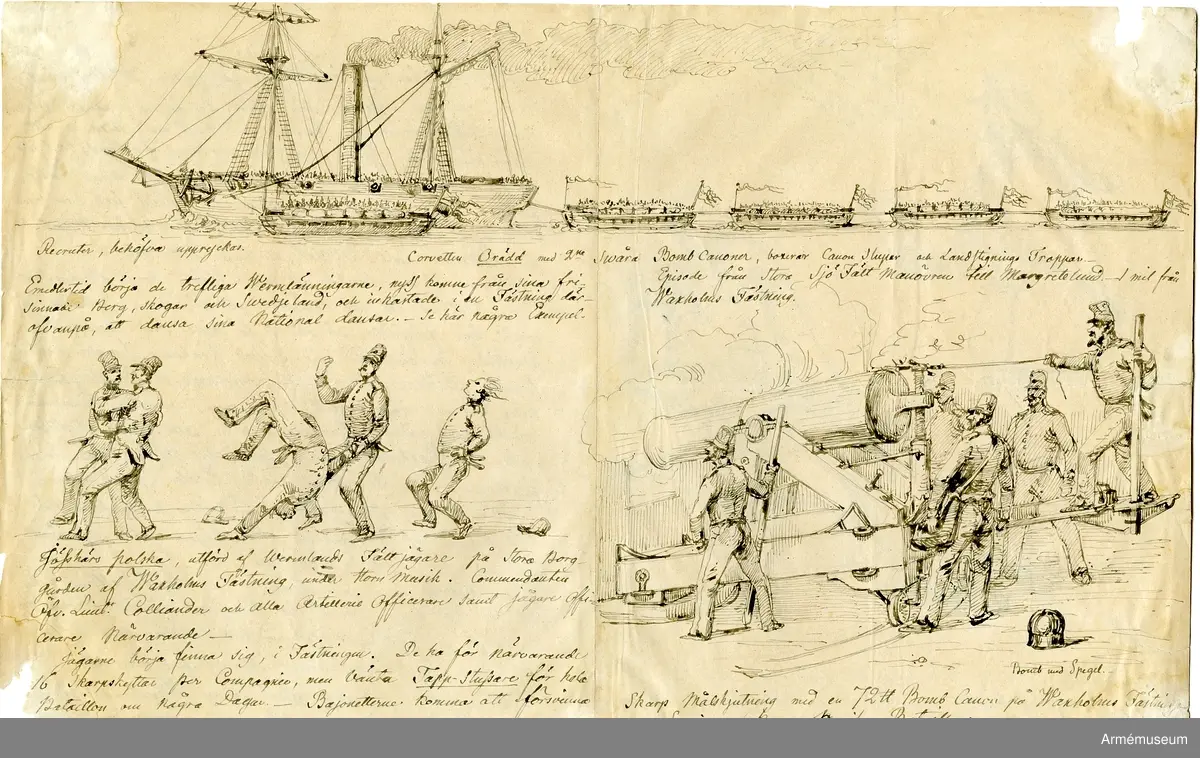 Recruter, behöfva uppryckas.
Corvetten Orädd med 2ne Swåra Bomb Canoner, boxerar Canon Slupar och Landstignings Troppar.
Episode från Stora Sjö Fält Manövren till Margretelund — 1 mil från
Waxholms Fästning.
Emedlertid börja de trefliga Wermlänningarne, nyss komne från sina fri-
sinnade Berg, Skogar och Swedjeland, och inhartade i en Fästning där-
ofvanpå, att dansa sina National dansar. — Se här några Exempel.
Jösshärs polska, utförd af Wermlands Fält jägare på Stora Borg
gården af Waxholms Fästning, under Horn Musik. Commendanten
Öfv. Lieut. Colliander och alla Artillerie Officerare samt Jägare Offi-
cerare Närvarande —
Jägarne börja finna sig, i Fästningen. De ha för närvarande
16 Skarpskyttar per Compagnie, men vänta Tapp-Studsare för hela
Bataillon om några Dagar. — Bajonetterne komma att försvinna
Bomb med Spegel.
Skarp Målskjutning med en 72 ℔ Bomb Canon på Waxholms Fästning
Armémuseum